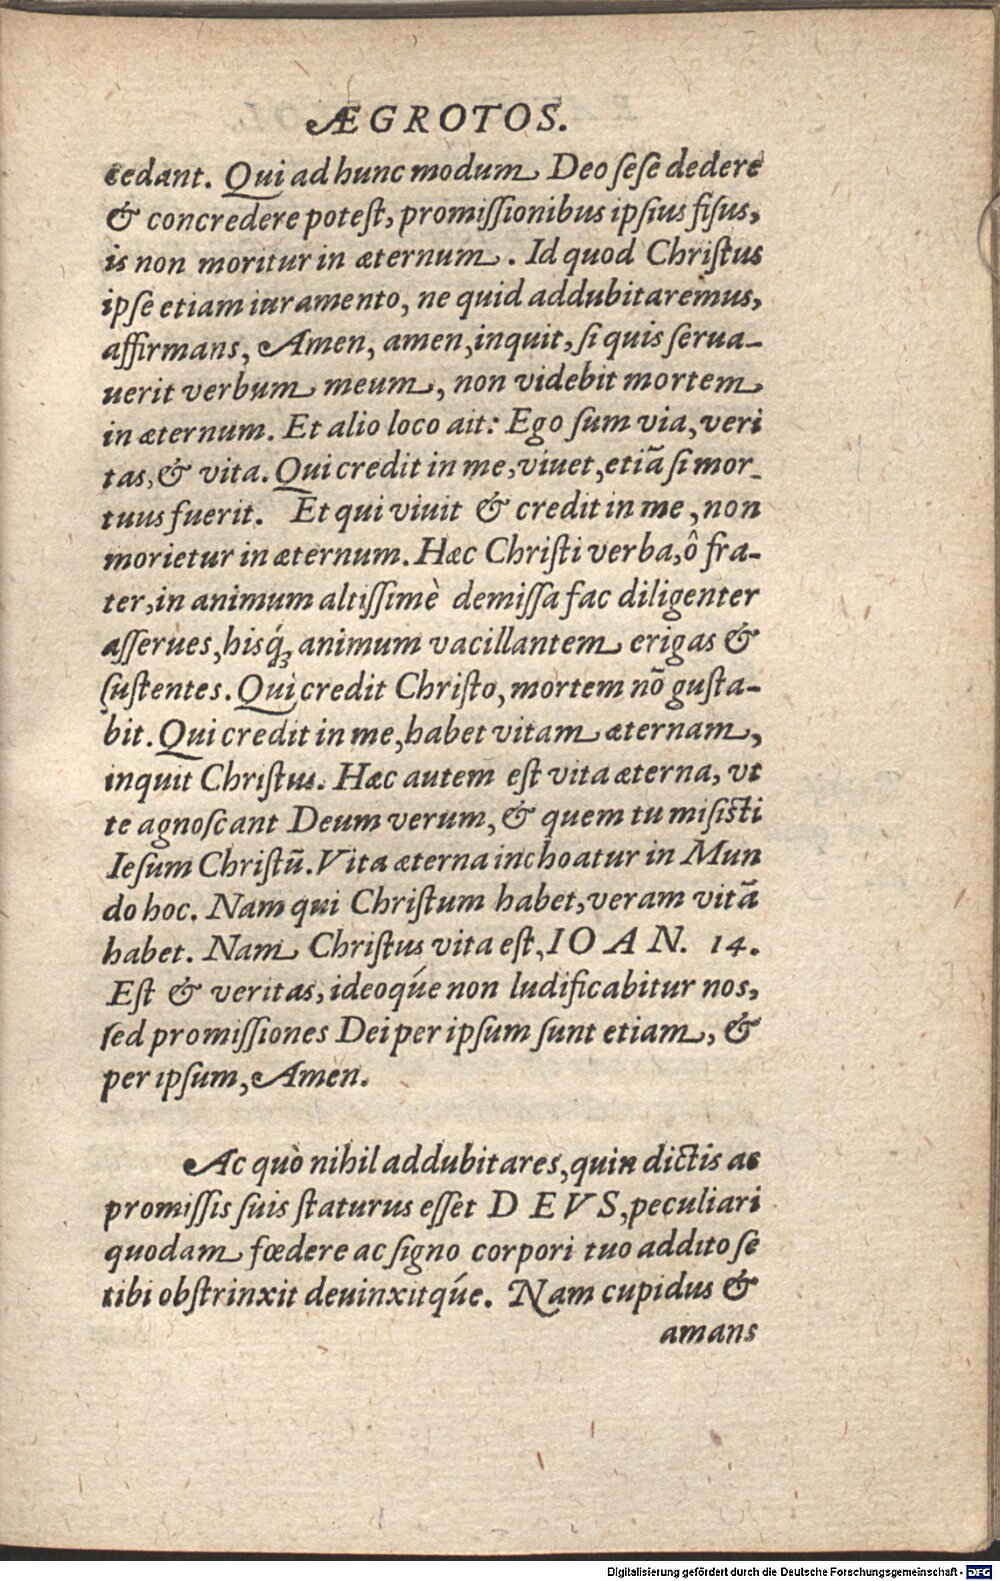 ÆGROTOS.
cedant. Qui ad hunc modum Deo ſeſe dedere
& concredere poteſt, promiſſionibus ipſius fiſus,
is non moritur in æternum. Id quod Chriſtus
ipſe etiam iuramento, ne quid addubitaremus,
affirmans, Amen, amen, inquit, ſi quis ſerua-
uerit verbum meum, non videbit mortem
in æternum. Et alio loco ait: Ego ſum via, veri
tas, & vita. Qui credit in me, viuet, etiã ſi mor-
tuus fuerit. Et qui viuit & credit in me, non
morietur in æternum. Hæc Chriſti verba, ô fra-
ter, in animum altiſſimè demiſſa fac diligenter
aſſerues, hisq́; animum vacillantem erigas &
ſuſtentes. Qui credit Chriſto, mortem nõ guſta-
bit. Qui credit in me, habet vitam æternam,
inquit Chriſtus. Hæc autem eſt vita æterna, vt
te agnoſcant Deum verum, & quem tu miſisti
Ieſum Chriſtũ. Vita æterna inchoatur in Mun
do hoc. Nam qui Chriſtum habet, veram vitã
habet. Nam Chriſtus vita eſt, IOAN. 14.
Eſt & veritas, ideoq́ue non ludificabitur nos,
ſed promiſſiones Dei per ipſum ſunt etiam, &
per ipſum, Amen.
Ac quò nihil addubitares, quin dictis ac
promiſſis ſuis ſtaturus eſſet DEVS, peculiari
quodam fœdere ac ſigno corpori tuo addito ſe
tibi obſtrinxit deuinxitq́ue. Nam cupidus &
amans
Digitalisierung gefördert durch die Deutsche Forschungsgemeinschaft - DFG